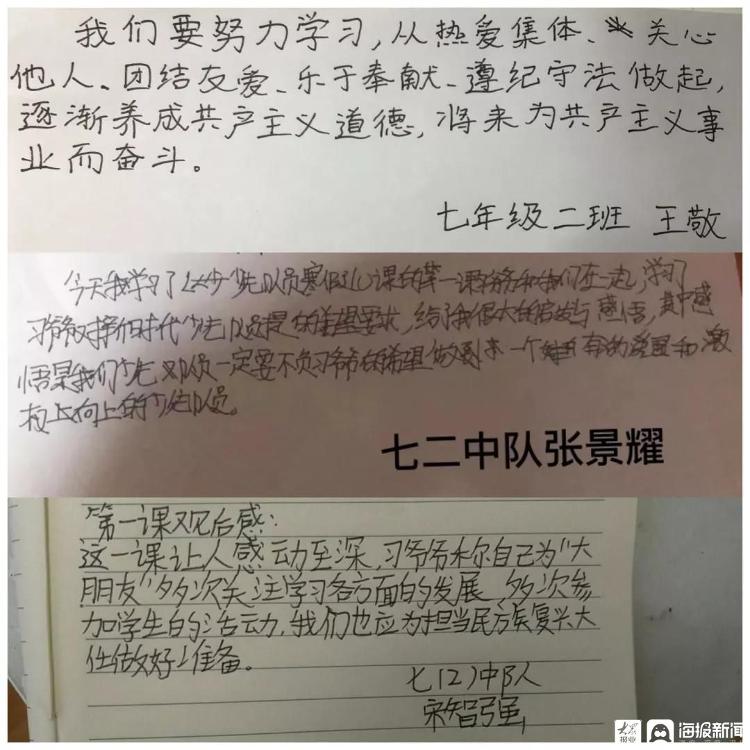 我们要努力学习,从热爱集体、关心
他人、团结友爱、乐于奉献、遵纪守法做起,
逐渐养成共产主义道德,将来为共产主义事
业而奋斗。
七年级二班 王敬
今天我学习了少先队员寒假云课的第一课和我们在一起,学习
习爷爷对新时代少先队员提的希望要求,给了我很大的启发与感悟,其中感
悟是我们少先队员一定要不负习爷爷的希望做一个有的爱国和激
极上向上的少先队员。
七二中队张景耀
第一课观后感:
这一课让人感动至深,习爷爷称自己为“大
朋友”多次关注学习各方面的发展,多次参
加学生的活动,我们也应为担当民族复兴大
任做好准备。
七(2)中队
宋智强
大众报业 海报新闻